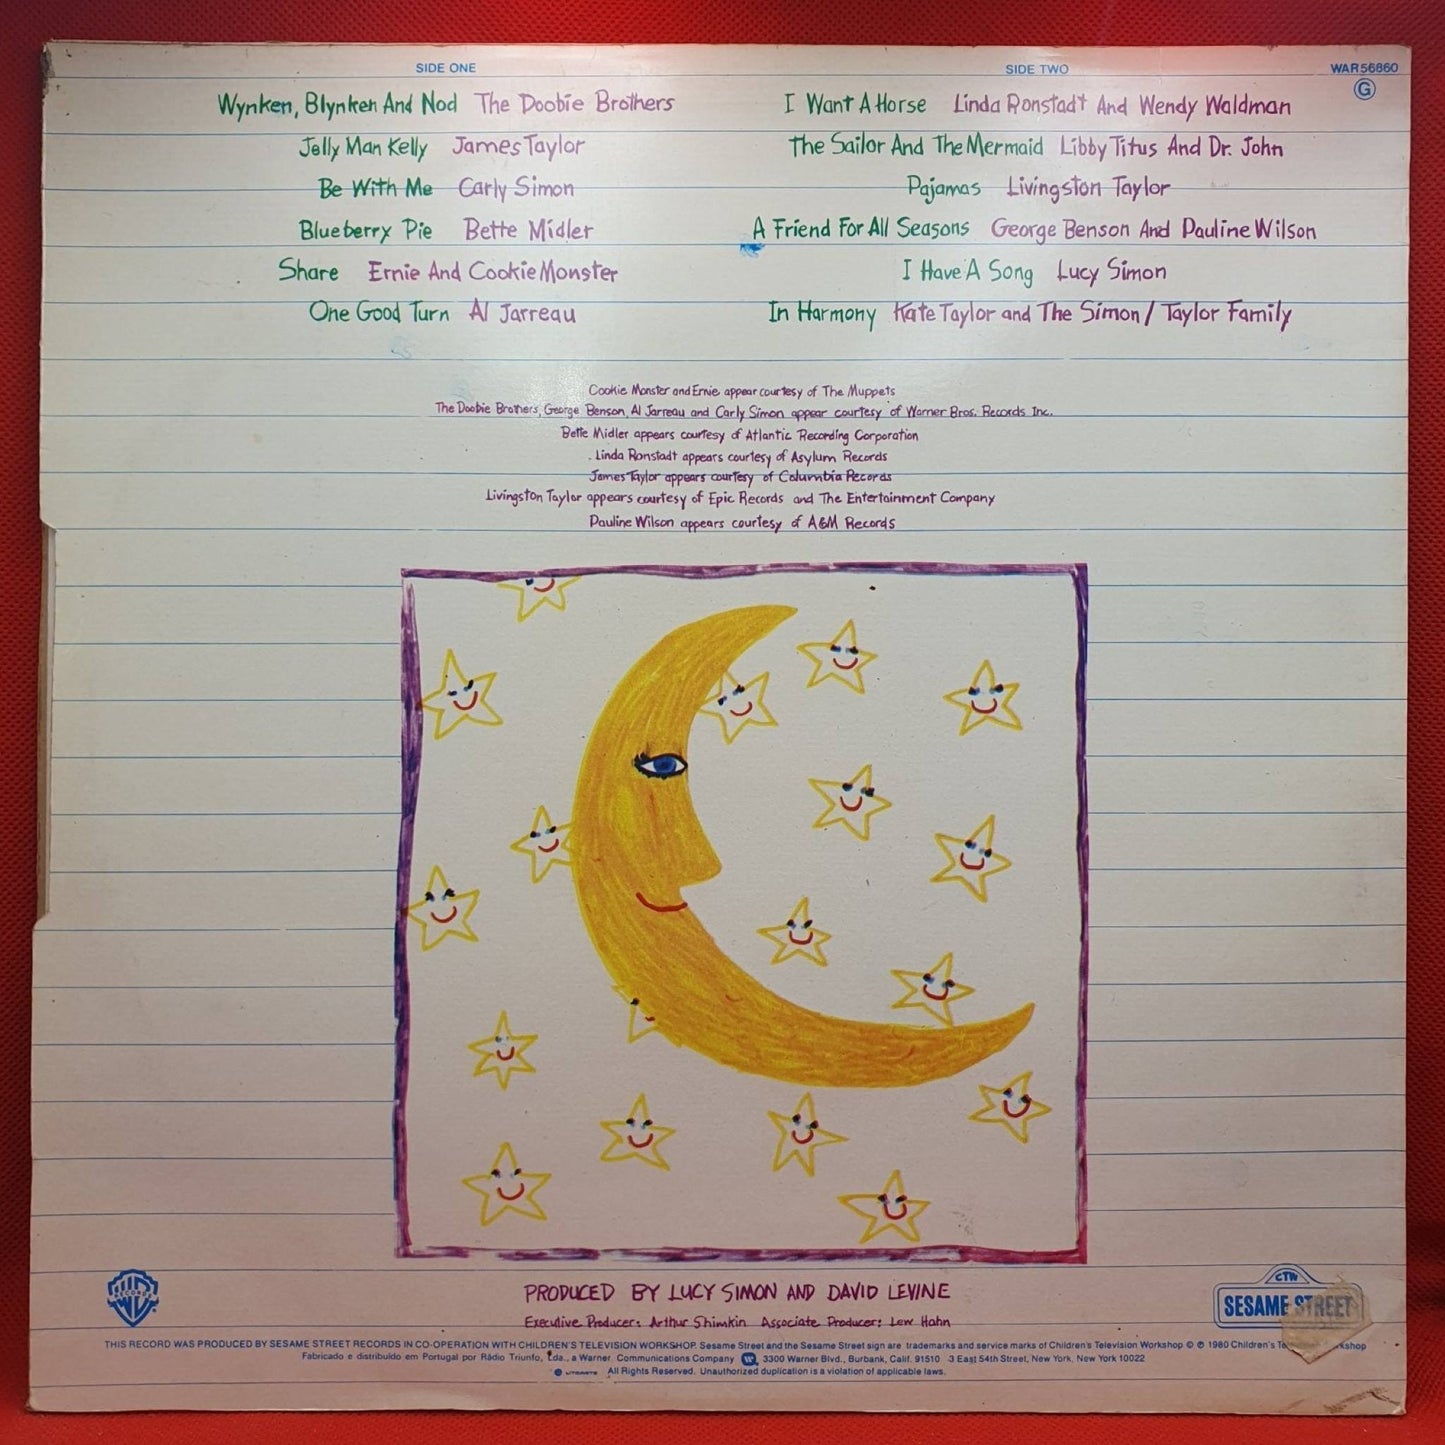 SIDE ONE
Wynken, Blynken And Nod The Doobie Brothers
Jelly Man Kelly James Taylor
Be With Me Carly Simon
Blueberry Pie Bette Midler
Share Ernie And Cookie Monster
One Good Turn Al Jarreau
SIDE TWO
WAR 56860
G
I Want A Horse Linda Ronstadt And Wendy Waldman
The Sailor And The Mermaid Libby Titus And Dr. John
Pajamas Livingston Taylor
A Friend For All Seasons George Benson And Pauline Wilson
I Have A Song Lucy Simon
In Harmony Kate Taylor and The Simon / Taylor Family
Cookie Monster and Ernie appear courtesy of The Muppets
The Doobie Brothers, George Benson, Al Jarreau and Carly Simon appear courtesy of Warner Bros. Records Inc.
Bette Midler appears courtesy of Atlantic Recording Corporation
Linda Ronstadt appears courtesy of Asylum Records
James Taylor appears courtesy of Columbia Records
Livingston Taylor appears courtesy of Epic Records and The Entertainment Company
Pauline Wilson appears courtesy of A&M Records
PRODUCED BY LUCY SIMON AND DAVID LEVINE
Executive Producer: Arthur Shimkin Associate Producer: Lew Hahn
RECORDS
CTW
SESAME STREET
THIS RECORD WAS PRODUCED BY SESAME STREET RECORDS IN CO-OPERATION WITH CHILDREN'S TELEVISION WORKSHOP. Sesame Street and the Sesame Street sign are trademarks and service marks of Children's Television Workshop © ℗ 1980 Children's
Fabricado e distribuído em Portugal por Rádio Triunfo, Lda., a Warner Communications Company 3300 Warner Blvd., Burbank, Calif. 91510 3 East 54th Street, New York, New York 10022
All Rights Reserved. Unauthorized duplication is a violation of applicable laws.